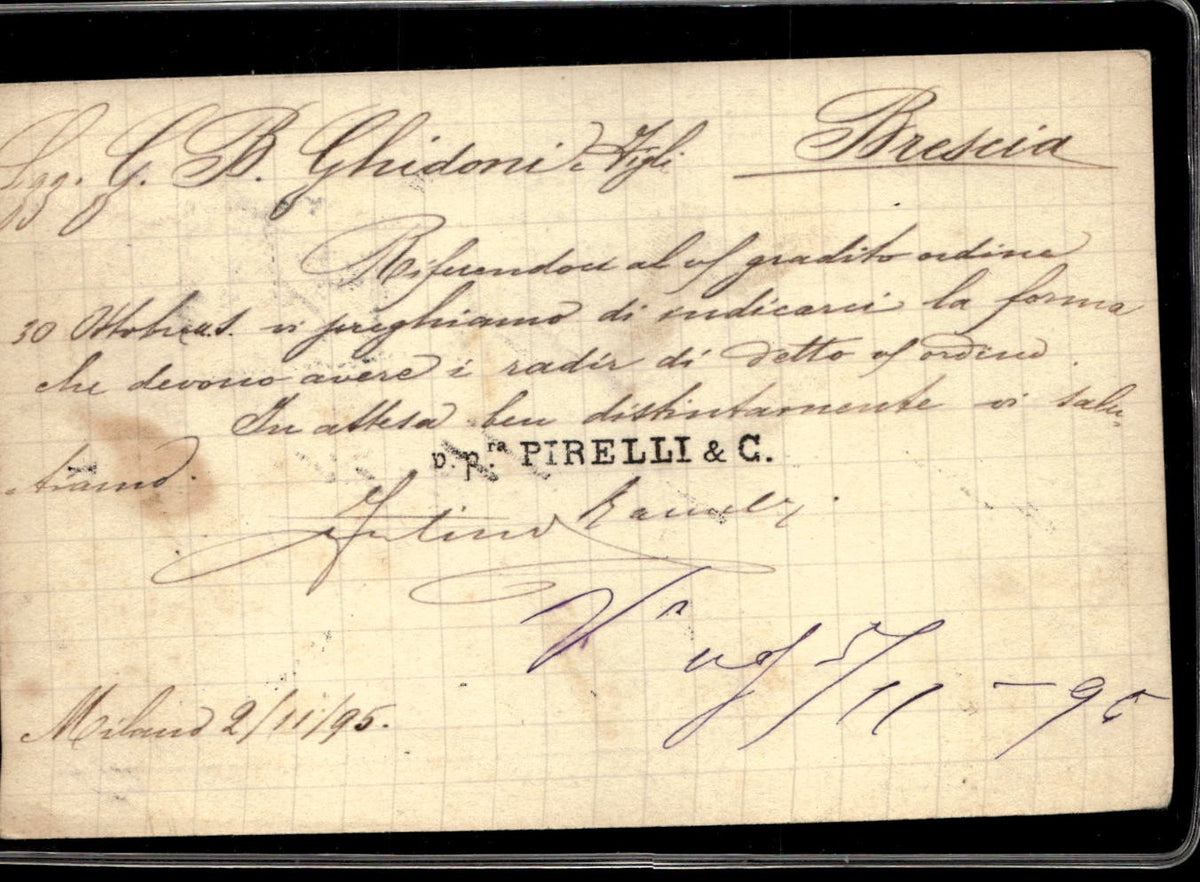 Sigg. G. B. Ghidoni e Figli Brescia
Riferendoci al vs gradito ordine
30 Ottobre u.s. vi preghiamo di indicarci la forma
che devono avere i radir di detto vs ordine.
In attesa ben distintamente vi salu-
tiamo.
p. p.ra PIRELLI & C.
Milano 2/11/95.
5/11 - 95